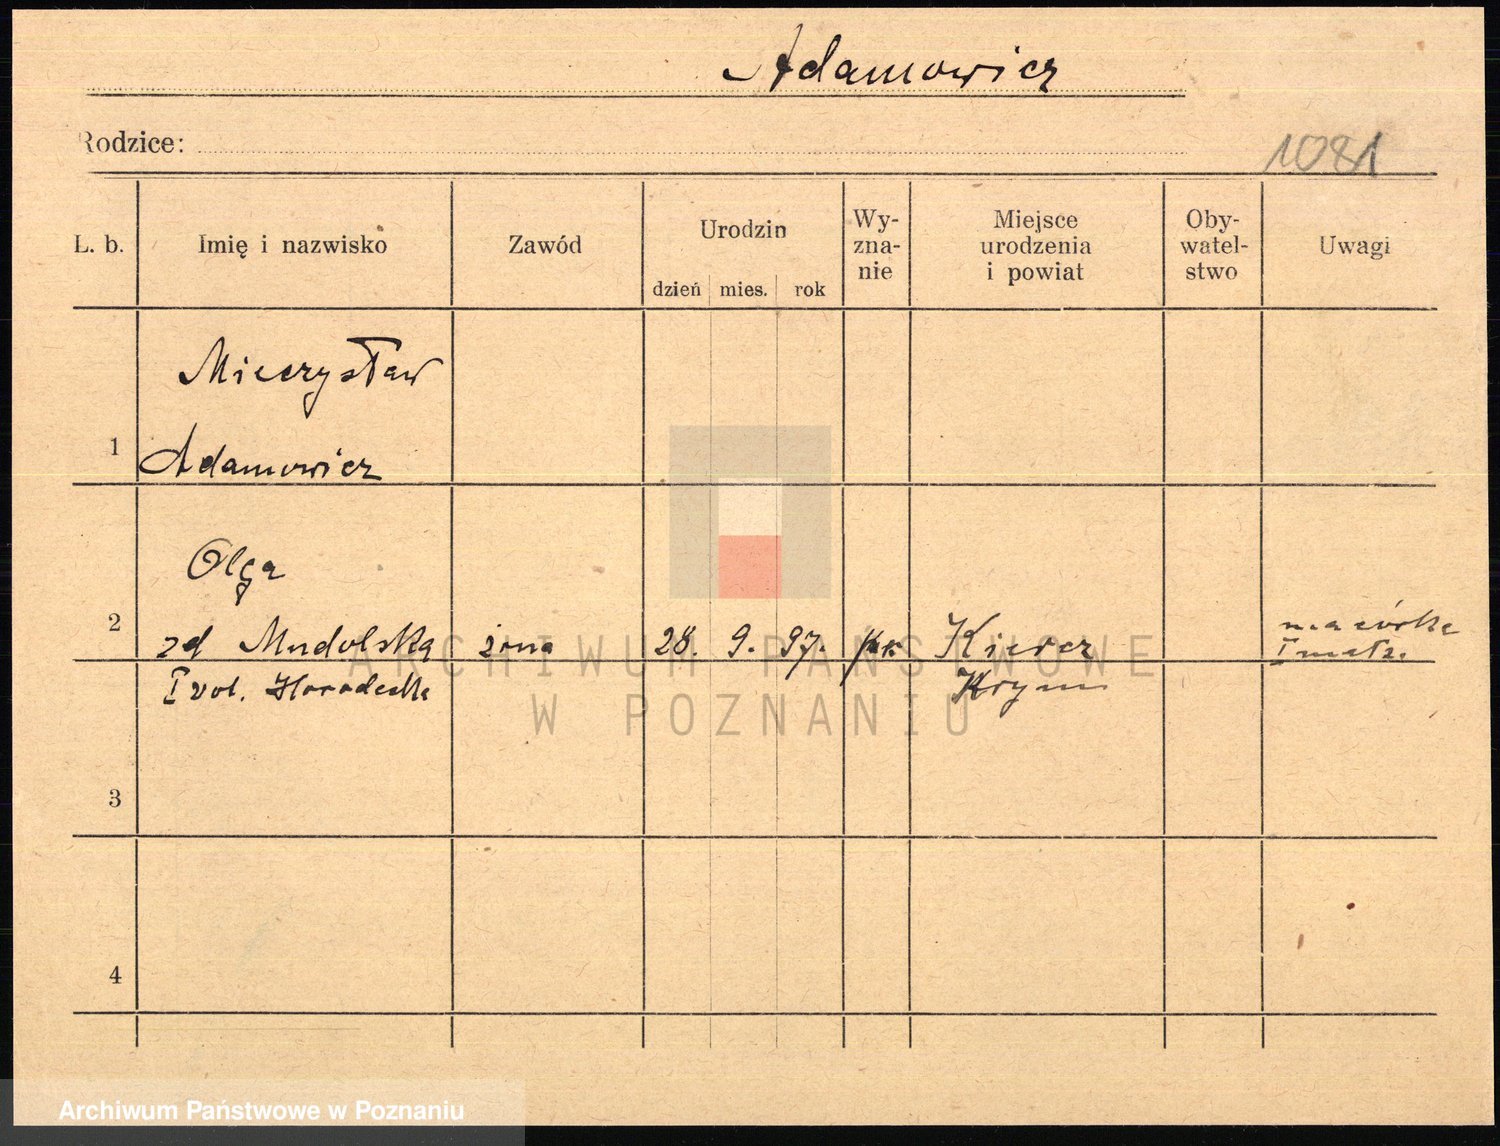 Adamowicz
Rodzice:
1081
L. b.
Imię i nazwisko
Zawód
Urodzin
dzień mies. rok
Wy-
zna-
nie
Miejsce
urodzenia
i powiat
Oby-
watel-
stwo
Uwagi
1
Mieczysław
Adamowicz
2
Olga
zd Mudolska żona 28. 9. 97. Kiercz
I vol. Horodecka Krym
ma córkę
I małż.
3
4
ARCHIWUM PAŃSTWOWE
W POZNANIU
Archiwum Państwowe w Poznaniu